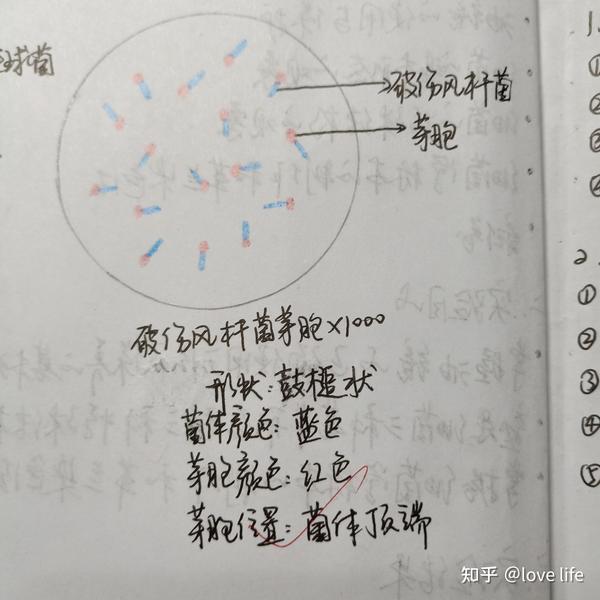 球菌
破伤风杆菌
芽胞
破伤风杆菌芽胞×1000
形状:鼓槌状
菌体颜色:蓝色
芽胞颜色:红色
芽胞位置:菌体顶端
1.
①
②
③
④
2.
①
②
③
④
⑤
知乎 @love life